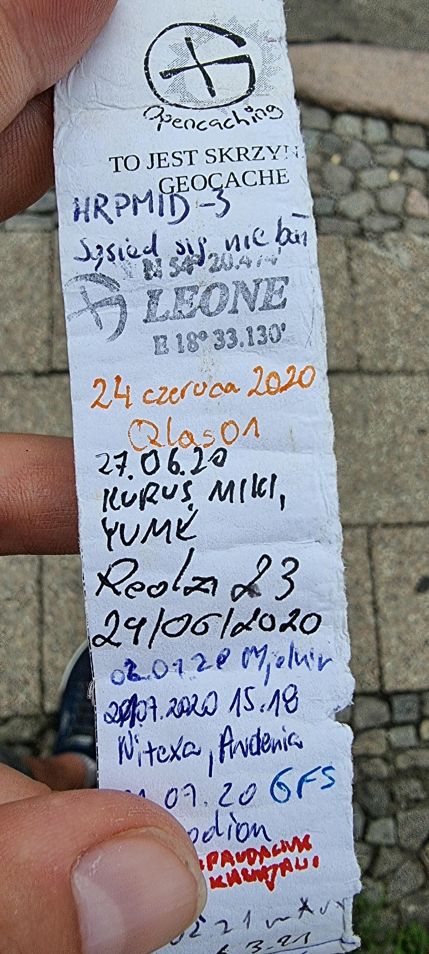 Opencaching
TO JEST SKRZYN
GEOCACHE
HRPMID-3
Sąsiad się nie bał
N 54° 20.474'
LEONE
E 18° 33.130'
24 czerwca 2020
Qlas01
27.06.20
KURUŚ, MIKI,
YUMĆ
Redzi 23
29/06/2020
02.07.20 Mjolnir
07.2020 15.18
Nitexa, Andenia
07.20 GFS
odion
3.21